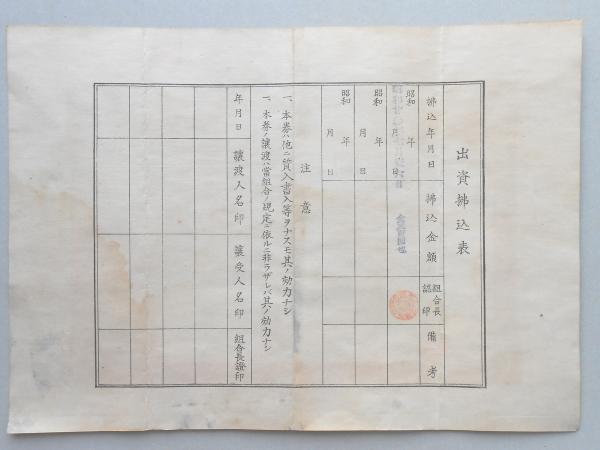 出資拂込表
拂込年月日 拂込金額 組合長認印 備考
昭和 年 月 日
昭和 年 月 日
昭和 年 月 日
注意
一、本券ハ他ニ質入書入等ヲナスモ其ノ効力ナシ
一、本券ノ譲渡ハ當組合ノ規定ニ依ルニ非ラザレバ其ノ効力ナシ
年月日 譲渡人名印 譲受人名印 組合長證印